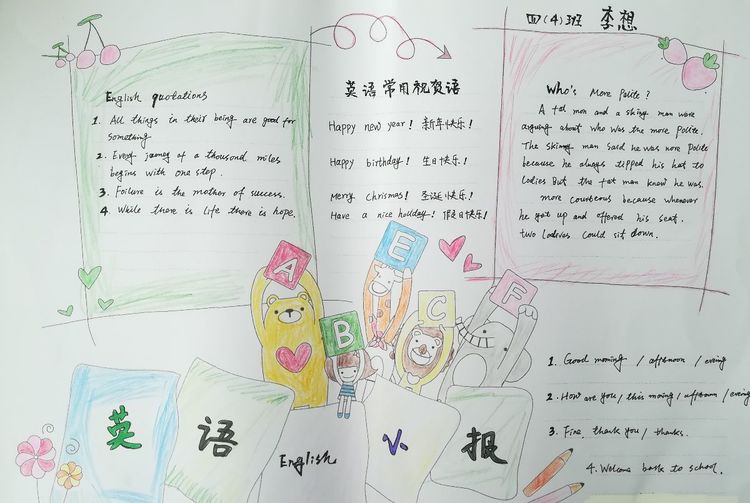 四(4)班 李想
English quotations
1. All things in their being are good for
something.
2. Every jouney of a thousand miles
begins with one step.
3. Failure is the mother of success.
4. While there is life there is hope.
英语常用祝贺语
Happy new year! 新年快乐!
Happy birthday! 生日快乐!
Merry Chrismas! 圣诞快乐!
Have a nice holiday! 假日快乐!
Who's More Polite?
A fat man and a skiny man were
arguing about who was the more polite.
The skinny man said he was more polite
because he always tipped his hat to
ladies But the fat man knew he was.
more courteous because whenever
he got up and offered his seat.
two could sit down.
A
E
B
C
F
英 语 小 报
English
1. Good morning / afternoon / evening
2. How are you / this moring / afternoon / evening
3. Fine, thank you / thanks.
4. Welcome back to school.